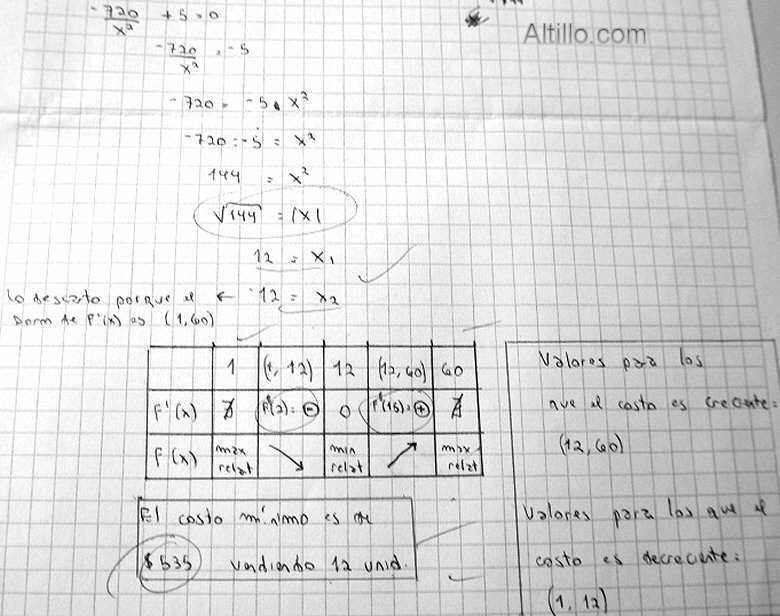 Altillo.com
-720/x² + 5 = 0
-720/x² = -5
-720 = -5 . x²
-720 : -5 = x²
144 = x²
√144 = |x|
12 = x₁
lo descarto porque el ← -12 = x₂
Dom de F'(x) es (1,60)
1 (1, 12) 12 (12, 60) 60
F'(x) ∄ F'(2) = ⊖ 0 F'(15) = ⊕ ∄
F(x) max relat ↘ min relat ↗ max relat
El costo mínimo es de
$535 vendiendo 12 unid.
Valores para los
que el costo es creciente:
(12, 60)
Valores para los que el
costo es decreciente:
(1, 12)